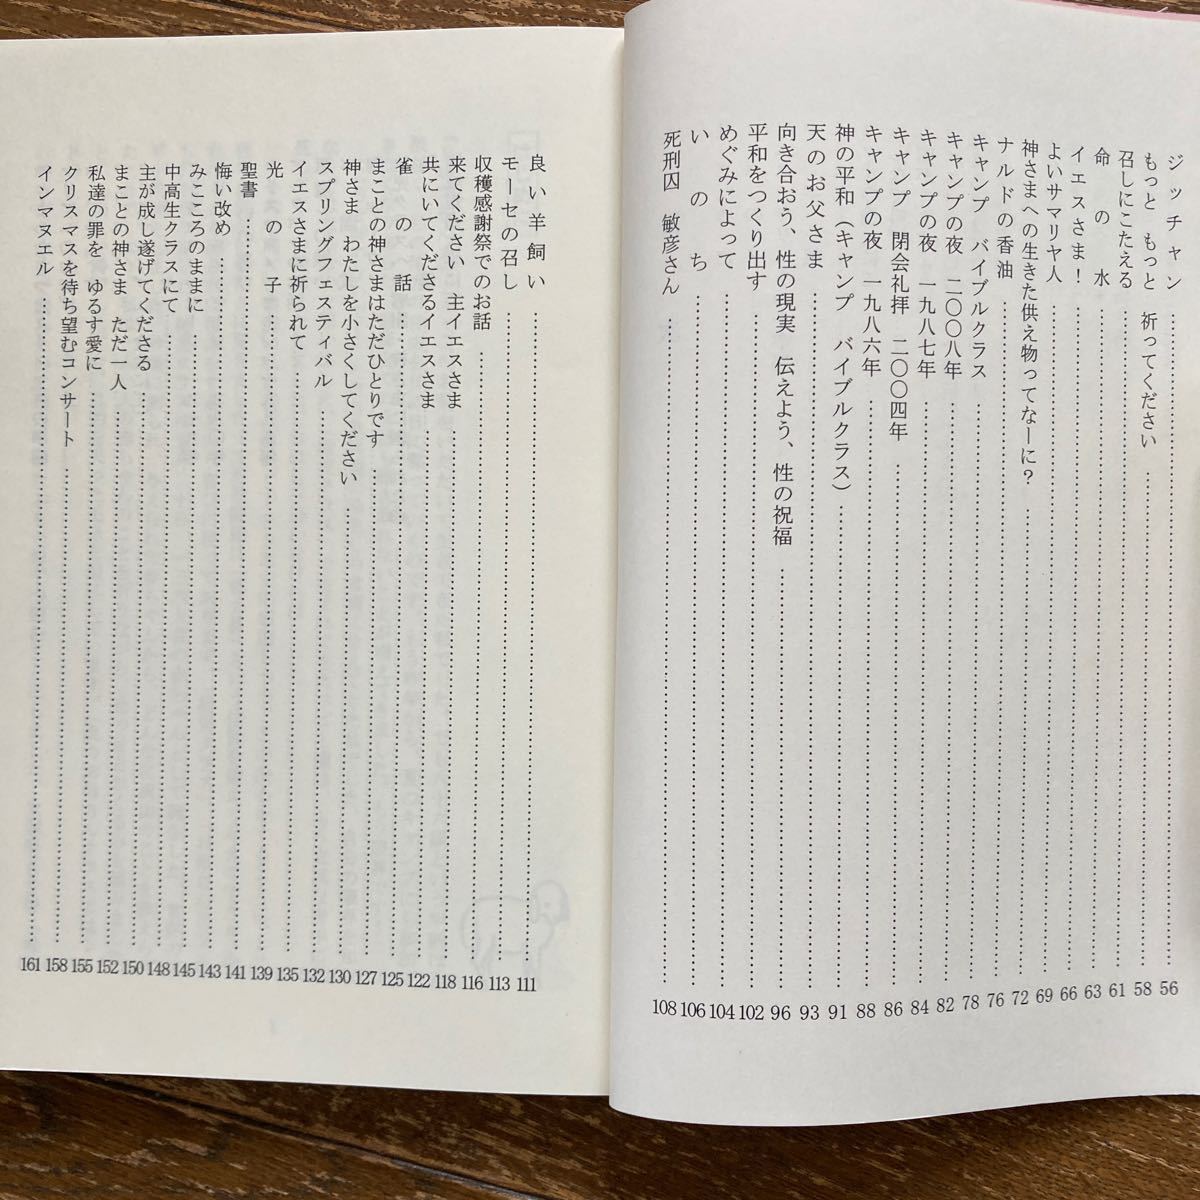 ジッチャン……56
もっと もっと 祈ってください……58
召しにこたえる……61
命の水……63
イエスさま！……66
よいサマリヤ人……69
神さまへの生きた供え物ってなーに？……72
ナルドの香油……76
キャンプ バイブルクラス……78
キャンプの夜 二〇〇八年……82
キャンプの夜 一九八七年……84
キャンプ 閉会礼拝 二〇〇四年……86
キャンプの夜 一九八六年……88
神の平和（キャンプ バイブルクラス）……91
天のお父さま……93
向き合おう、性の現実 伝えよう、性の祝福……96
平和をつくり出す……102
めぐみによって……104
いのち……106
死刑囚 敏彦さん……108
良い羊飼い……111
モーセの召し……113
収穫感謝祭でのお話……116
来てください 主イエスさま……118
共にいてくださるイエスさま……122
雀の話……125
まことの神さまはただひとりです……127
神さま わたしを小さくしてください……130
スプリングフェスティバル……132
イエスさまに祈られて……135
光の子……139
聖書……141
悔い改め……143
みこころのままに……145
中高生クラスにて……148
主が成し遂げてくださる……150
まことの神さま ただ一人……152
私達の罪を ゆるす愛に……155
クリスマスを待ち望むコンサート……158
インマヌエル……161